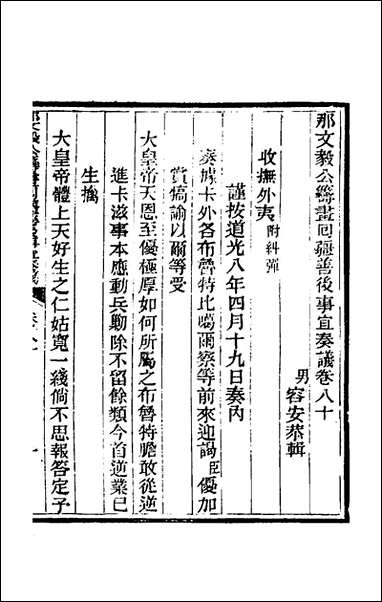 那文毅公籌畫回疆善後事宜奏議卷八十
男容安恭輯
收撫外夷附糾彈
謹按道光八年四月十九日奏內
奏城卡外各布魯特比噶爾察等前來迎謁臣優加
賞犒諭以爾等受
大皇帝天恩至優極厚如何所屬之布魯特膽敢從逆
進卡滋事本應動兵勦除不留餘類今首逆業已
生擒
大皇帝體上天好生之仁姑寬一綫倘不思報答定予